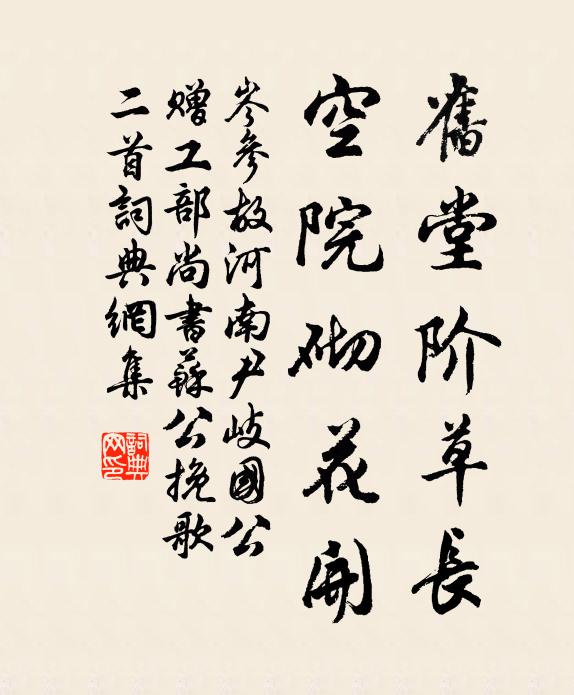 舊堂阶草長
空院砌花開
岑參故河南尹岐國公
赠工部尚書蘇公挽歌
二首詞典網集
詞典網印